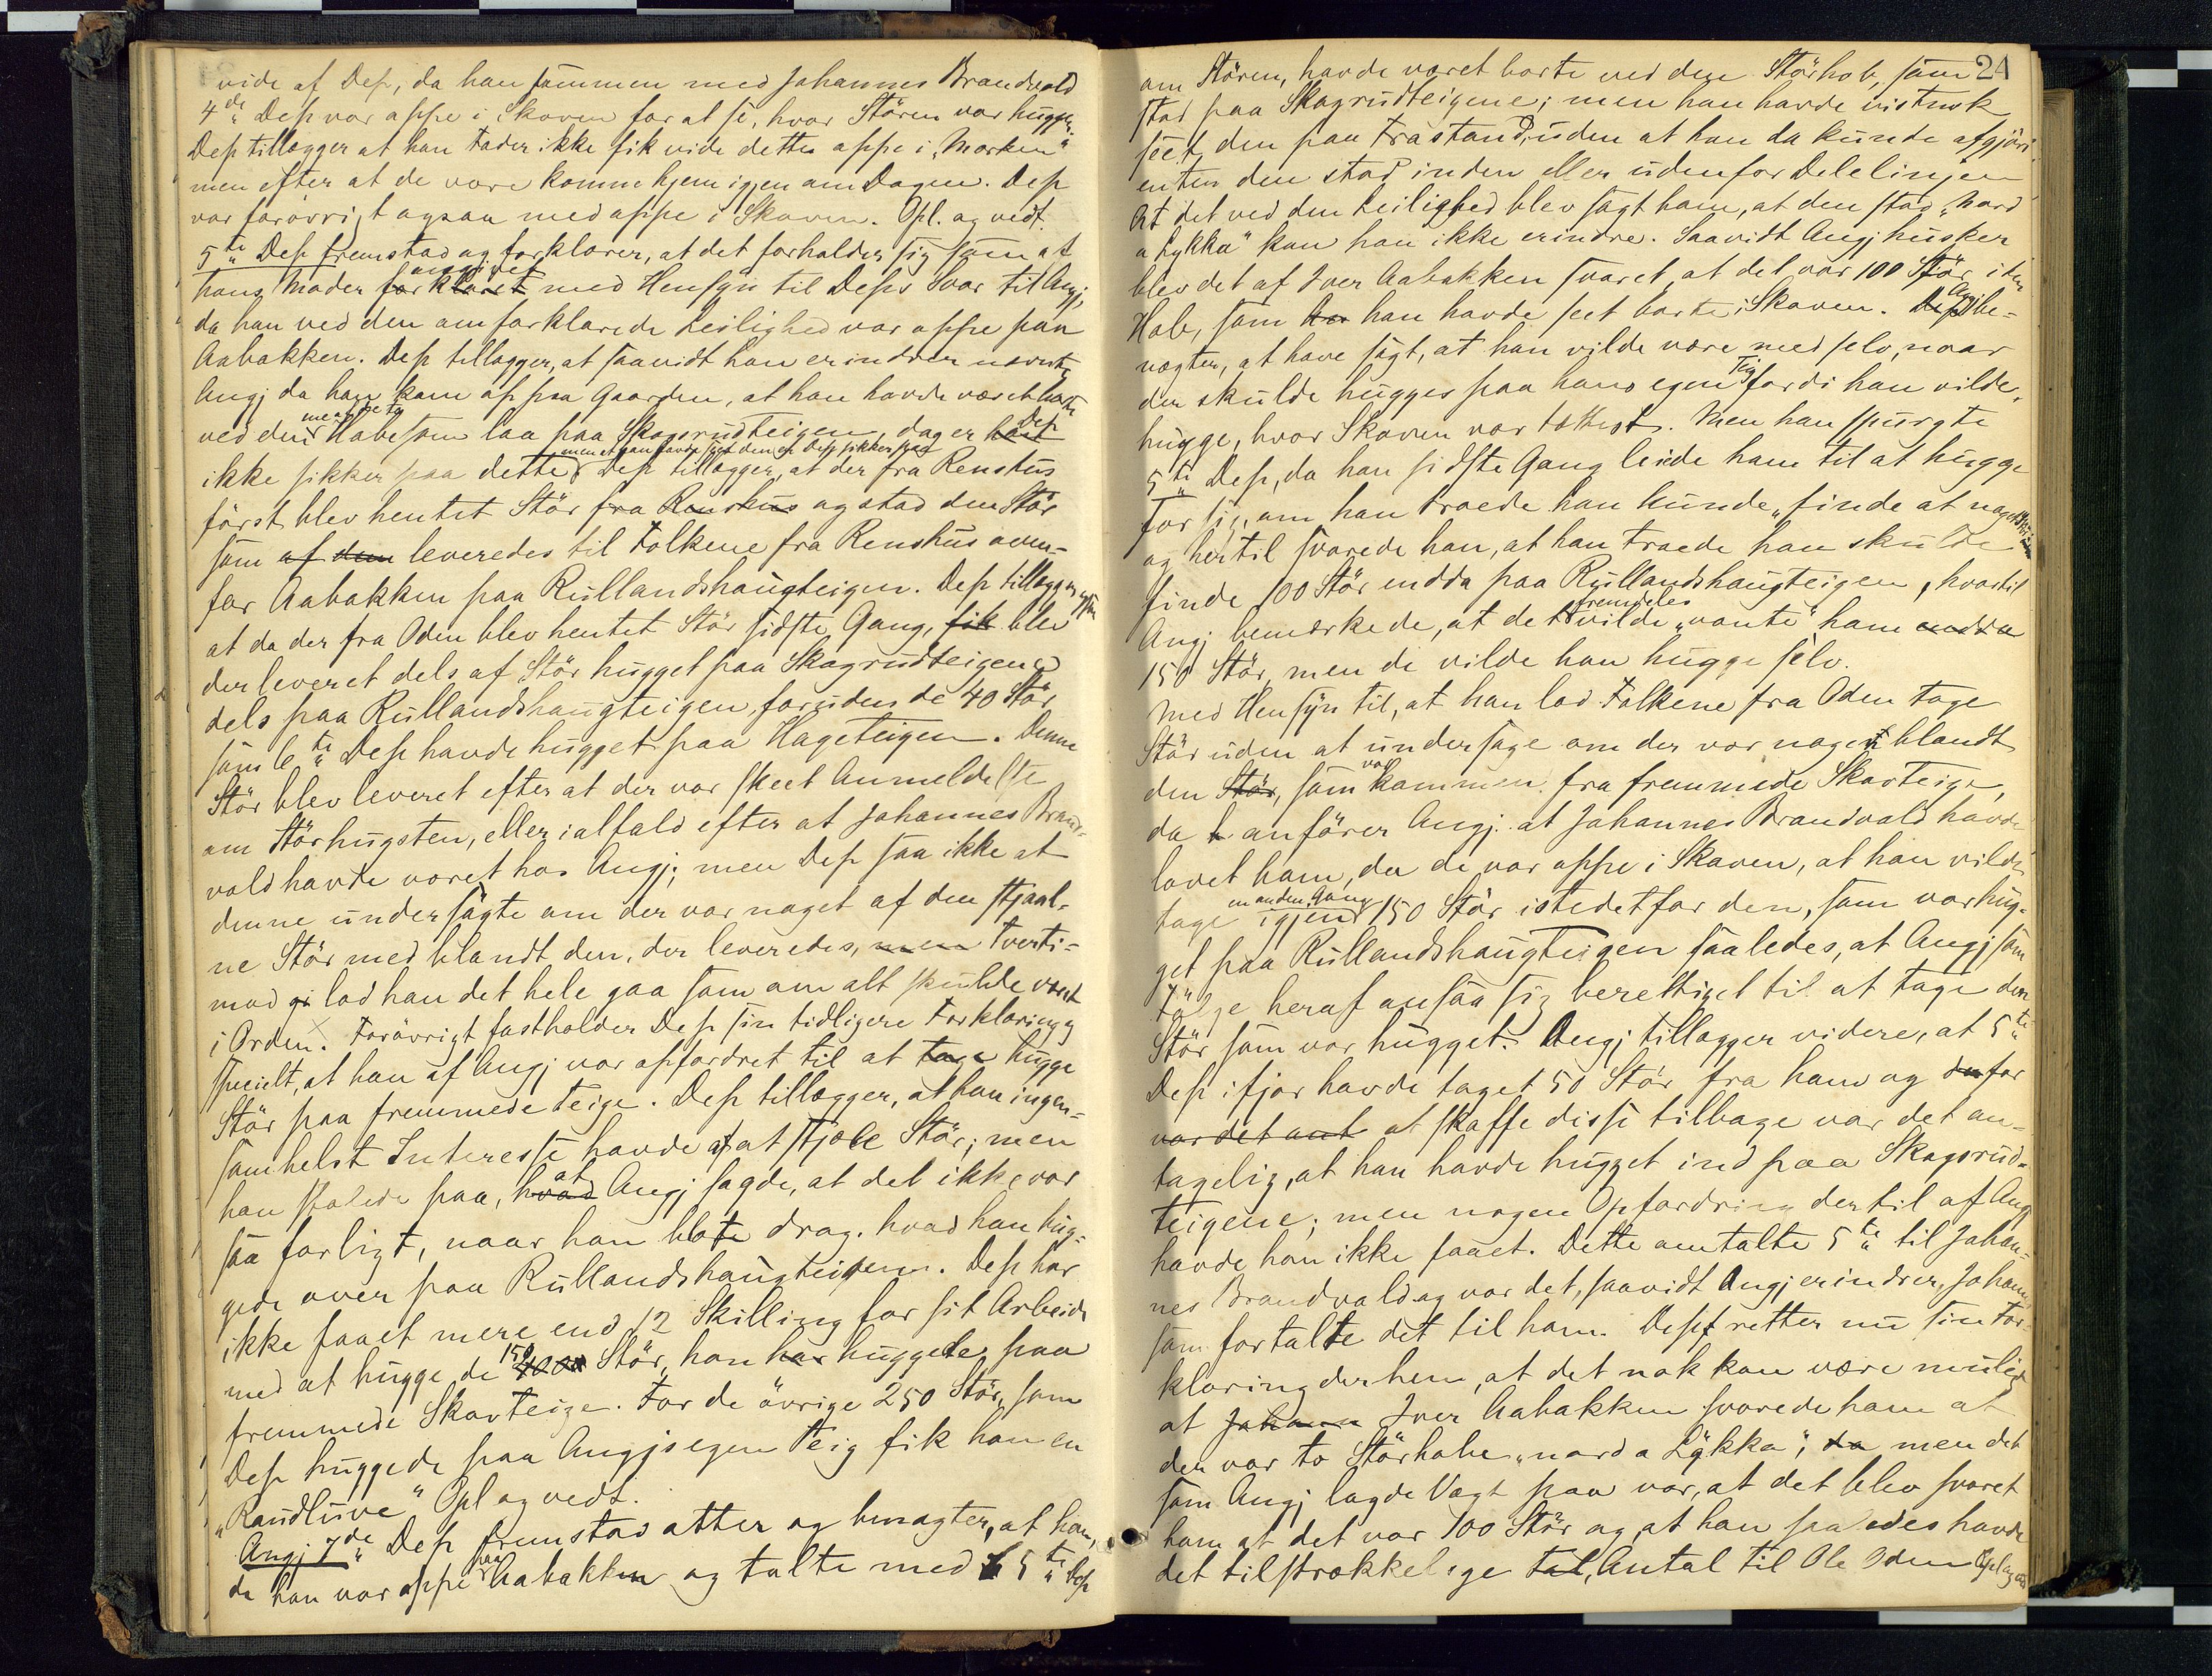 vide af Dep, da han sammen med Johannes Brandvold
4de Dep var oppe i Skoven for at se, hvor Stören var hugget.
Dep tillægger at han Fader ikke fik vide dette oppe i „Marken"
men efter at de vare komne hjem igjen om Dagen. Dep
var forövrigt ogsaa med oppe i Skoven. Opl. og vedt.
5te Dep fremstod og forklarer, at det forholder sig som af
hans Moder forklaret angivet med Hensyn til Deps Svar til Angj,
da han ved den omforklarede Leilighed var oppe paa
Aabakken. Dep tillægger, at saavidt han erindrer nævnte
Angj da han kom op paa Gaarden, at han havde været borte
ved den Hobe som laa paa Skogsrudteigen, dog er han Dep
ikke sikker paa dette men at han havde seet den er Dep sikker paa. Dep tillægger, at der fra Renshus
först blev hentet Stör fra Renshus og stod den Stör
som af dem leveredes til Folkene fra Renshus oven-
for Aabakken paa Rullandshaugteigen. Dep tillægger
at da der fra Oden blev hentet Stör sidste Gang, fik blev
der leveret dels af Stör hugget paa Skogrudteigene
dels paa Rullandshaugteigen, foruden de 40 Stör
som 6te Dep havde hugget paa Hageteigen. Denne
Stör blev leveret efter at der var skeet Anmeldelse
om Störhugsten, eller ialfald efter at Johannes Brand-
vold havde været hos Angj; men Dep saa ikke at
denne undersögte om der var noget af den stjaal-
ne Stör med blandt den, der leveredes, men Tverti-
mod gi lod han det hele gaa som om alt skulde været
i Orden. Forövrigt fastholder Dep sin tidligere Forklaring og
specielt, at han af Angj var opfordret til at tage hugge
Stör paa fremmede Teige. Dep tillægger, at han ingen-
somhelst Interesse havde af at stjæle Stör; men
han stolede paa, hvad at Angj sagde, at det ikke var
saa farligt, naar han blote drog, hvad han hug-
gede over paa Rullandshaugteigen. Dep har
ikke faaet mere end 12 Skilling for sit Arbeide
med at hugge de 150 Stör, han har huggede paa
fremmede Skovteige. For de övrige 250 Stör, som
Dep huggede paa Angjs egen Teig fik han en
„Raudluve" Opl og vedt.
Angj 7de Dep fremstod atter og benægter, at han,
da han var oppe paa Aabakken og talte med 5te Dep
24
om Stören, havde været borte ved den Störhob, som
stod paa Skogrudteigene; men han havde vistnok
seet den paa Frastand, uden at han da kunde afgjöre
enten den stod inden eller udenfor Delelinjen
At det ved den Leilighed blev sagt ham, at den stod „nord
a Lykka" kan han ikke erindre. Saavidt Angj husker
blev det af Iver Aabakken svaret, at det var 100 Stör i den
Hob, som han havde seet borte i Skoven. Dep Angj be-
nægter, at have sagt, at han vilde være med selv, naar
der skulde hugges paa hans egen Teig fordi han vilde
hugge, hvor Skoven var tættest. Men han spurgte
5te Dep, da han sidste Gang leiede ham til at hugge
for sig, om han troede han kunde „finde at noget Stör
og hertil svarede han, at han troede han skulde
finde 100 Stör endda paa Rullandshaugteigen, hvortil
Angj bemærkede, at det fremdeles vilde „vante" ham endda
150 Stör, men de vilde han hugge selv.
Med Hensyn til, at han lod Folkene fra Oden tage
Stör uden at undersöge om der var noget blandt
den Stör, som var kommen fra fremmede Skovteige,
da anförer Angj. at Johannes Brandvold havde
lovet ham, da de var oppe i Skoven, at han vilde
tage igjen en anden Gang 150 Stör istedetfor den, som var hug-
get paa Rullandshaugteigen saaledes, at Angj som
Fölge heraf ansaa sig berettiget til at tage den
Stör som var hugget. Angj tillægger videre, at 5te
Dep ifjor havde taget 50 Stör fra ham og for
var det ant at skaffe disse tilbage var det an-
tagelig, at han havde hugget ind paa Skogsrud-
teigene; men nogen Opfordring dertil af Angj
havde han ikke faaet. Dette omtalte 5te til Johan-
nes Brandvold og var det, saavidt Angj erindrer, Johannes
som fortalte det til ham. Dep retter nu sin For-
klaring derhen, at det nok kan være muligt
at Johann Iver Aabakken svarede ham at
der var to Störhobe „nord a Lykka", da men det
som Angj lagde Vægt paa var, at det blev svaret
ham at det var 100 Stör og at han saaledes havde
det tilstrækkelige tal, Antal til Ole Oden Opl og vedt